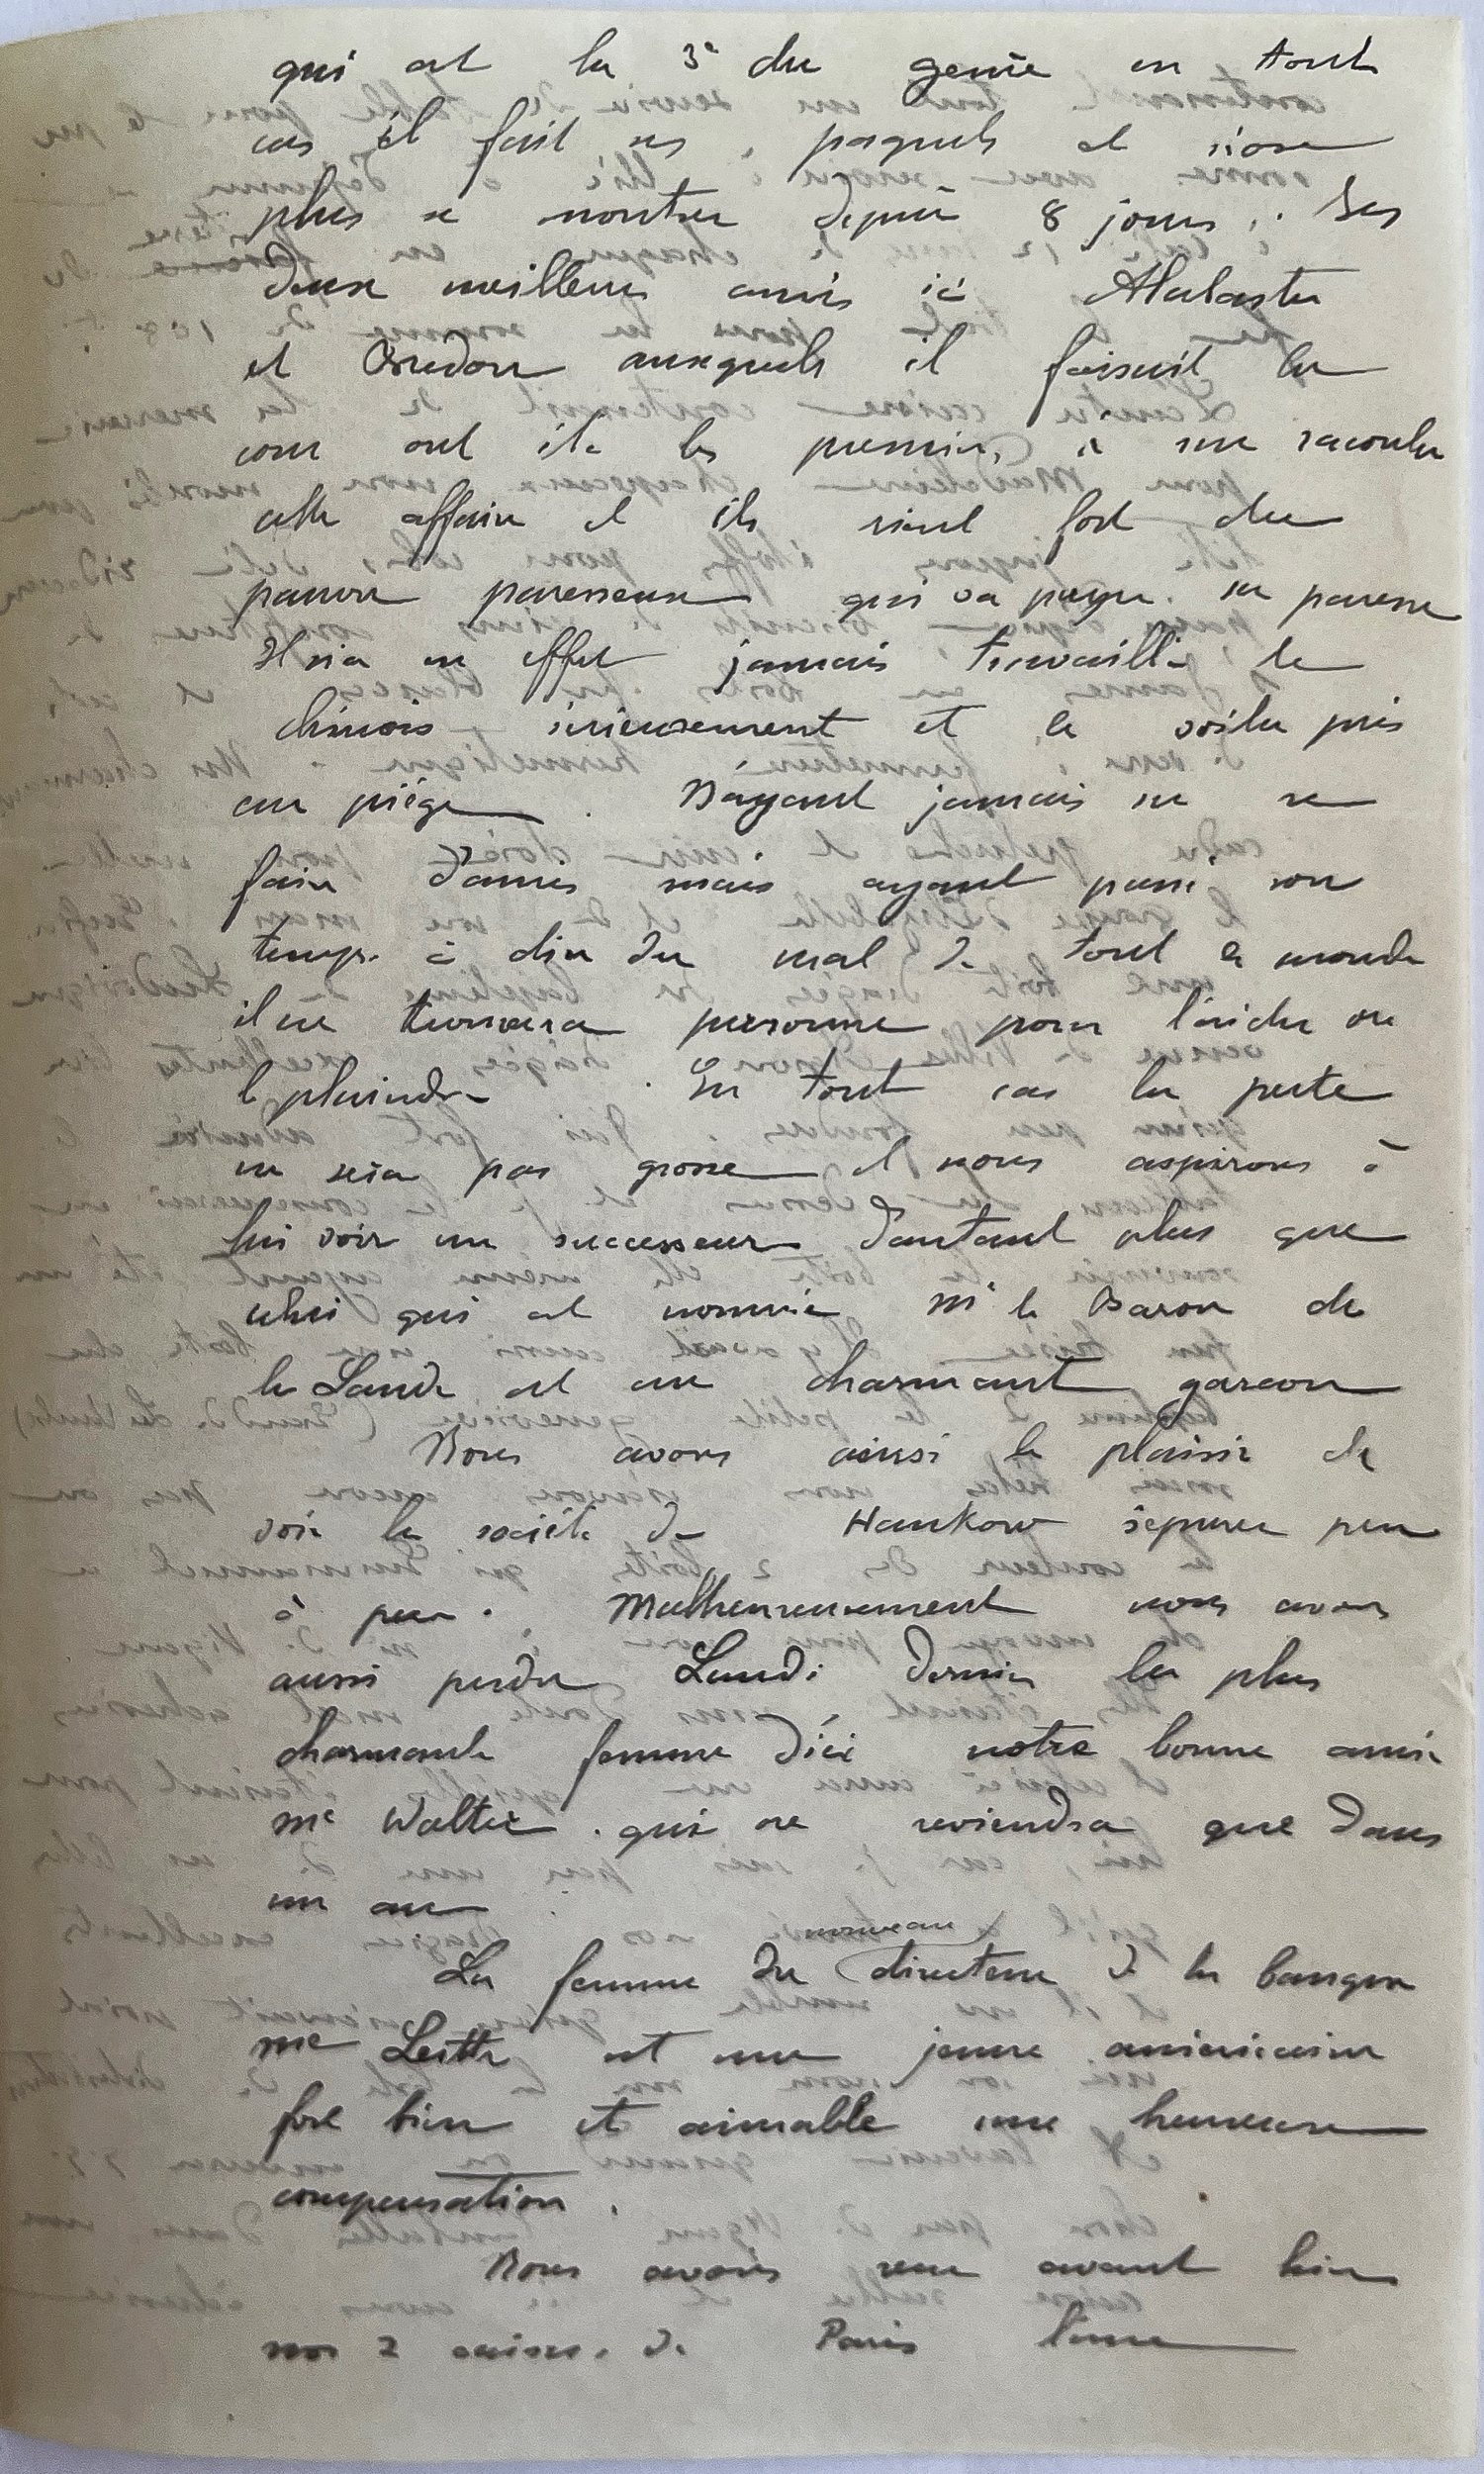 qui est la 3e du genre en tout
cas il fait ses paquets et n'ose
plus se montrer depuis 8 jours. Ses
deux meilleurs amis ici Alabaster
et auxquels il faisait la
cour ont été les premiers à me raconter
cette affaire et ils rient fort du
pauvre paresseux qui va payer sa paresse
Il n'a en effet jamais travaillé le
chinois sérieusement et le voilà pris
au piège. N'ayant jamais su se
faire d'amis mais ayant passé son
temps à dire du mal de tout le monde
il ne trouvera personne pour l'aider ou
le plaindre. En tout cas la perte
ne sera pas grosse et nous aspirons à
lui voir un successeur d'autant plus que
celui qui est nommé Mr le Baron de
la Lande est un charmant garçon
Nous avons ainsi le plaisir de
voir la société de Hankow s'épurer peu
à peu. Malheureusement nous avons
aussi perdu Lundi dernier la plus
charmante femme d'ici notre bonne amie
Me Walter. qui ne reviendra que dans
un an.
La femme du nouveau directeur de la banque
Me est une jeune américaine
fort bien et aimable une heureuse
compensation.
Nous avons reçu avant hier
nos 2 caisses de Paris l'une